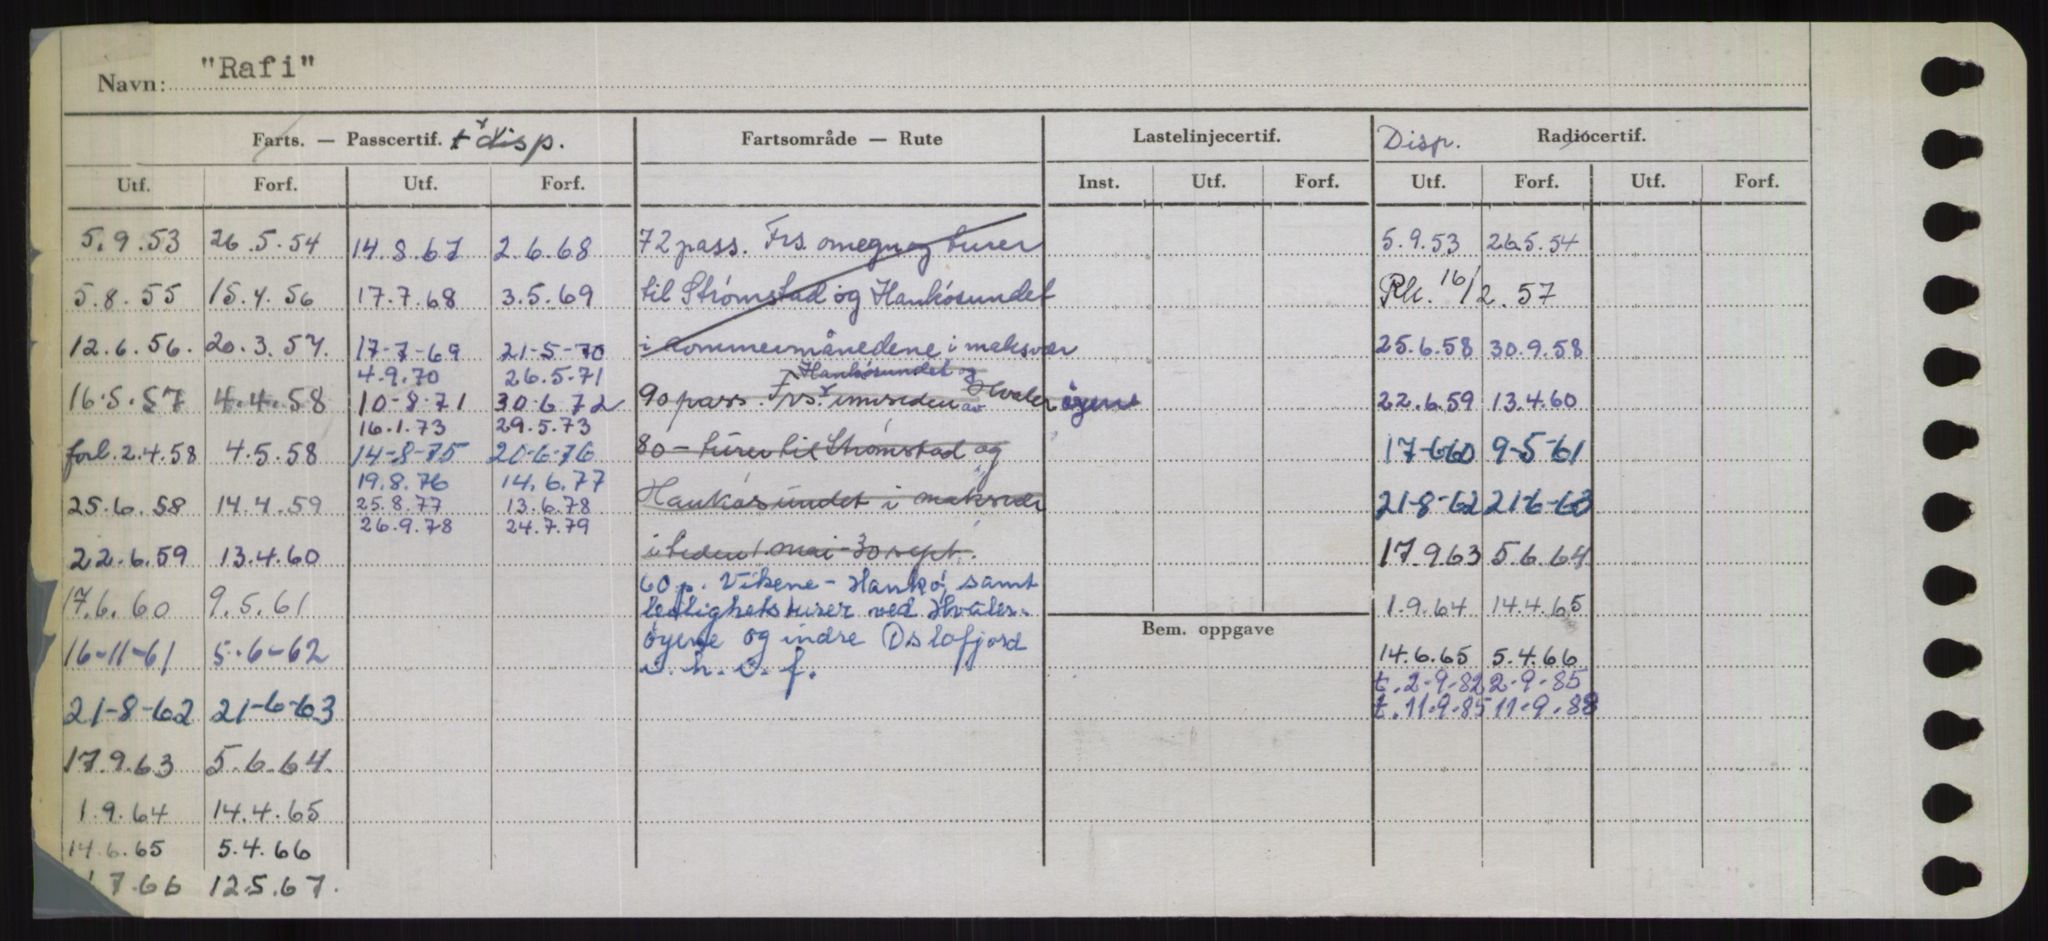 Navn: "Rafi"
Farts. — Passcertif. + disp. Fartsområde — Rute Lastelinjecertif. Disp. Radiocertif.
Utf. Forf. Utf. Forf. Inst. Utf. Forf. Utf. Forf. Utf. Forf.
5.9.53 26.5.54 14.8.67 2.6.68 72 pass. Frs. omegn og turer 5.9.53 26.5.54
5.8.55 15.4.56 17.7.68 3.5.69 til Strømstad og Hankøsundet Rk. 16/2.57
12.6.56. 20.3.57. 17-7-69 21-5-70 i sommermånedene i maksvær 25.6.58 30.9.58
4.9.70 26.5.71 Hankøsundet og
16.5.57 4.4.58 10-8-71 30-6-72 90 pass. Frs. innsiden av Hvaler øyene 22.6.59 13.4.60
16.1.73 29.5.73
forl. 2.4.58 4.5.58 14-8-75 20-6-76 80 - turer til Strømstad og 17-6-60 9-5-61
19.8.76 14.6.77
25.6.58 14.4.59 25.8.77 13.6.78 Hankøsundet i maksvær 21-8-62 21-6-63
26.9.78 24.7.79
22.6.59 13.4.60 i tiden 1. mai - 30 sept. 17.9.63 5.6.64
60 p. Vikene - Hankø, samt
17.6.60 9.5.61 leilighetsturer ved Hvaler- 1.9.64 14.4.65
øyene og indre Oslofjord Bem. oppgave
16-11-61 5-6-62 i. h. t. f. 14.6.65 5.4.66
t. 2-9-82 2-9-85
21-8-62 21-6-63 t. 11-9-85 11-9-88
17.9.63 5.6.64.
1.9.64 14.4.65
14.6.65 5.4.66
7.66 12.5.67.